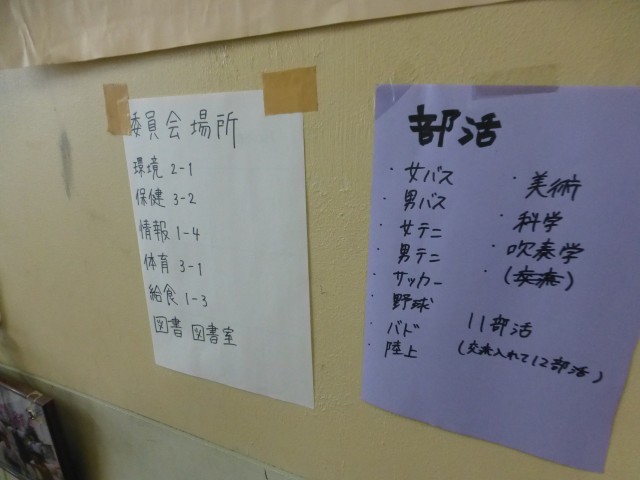 委員会場所
環境 2-1
保健 3-2
情報 1-4
体育 3-1
給食 1-3
図書 図書室
部活
・女バス
・男バス
・女テニ
・男テニ
・サッカー
・野球
・バド
・陸上
・美術
・科学
・吹奏学
・(交流)
11部活
(交流入れて12部活)